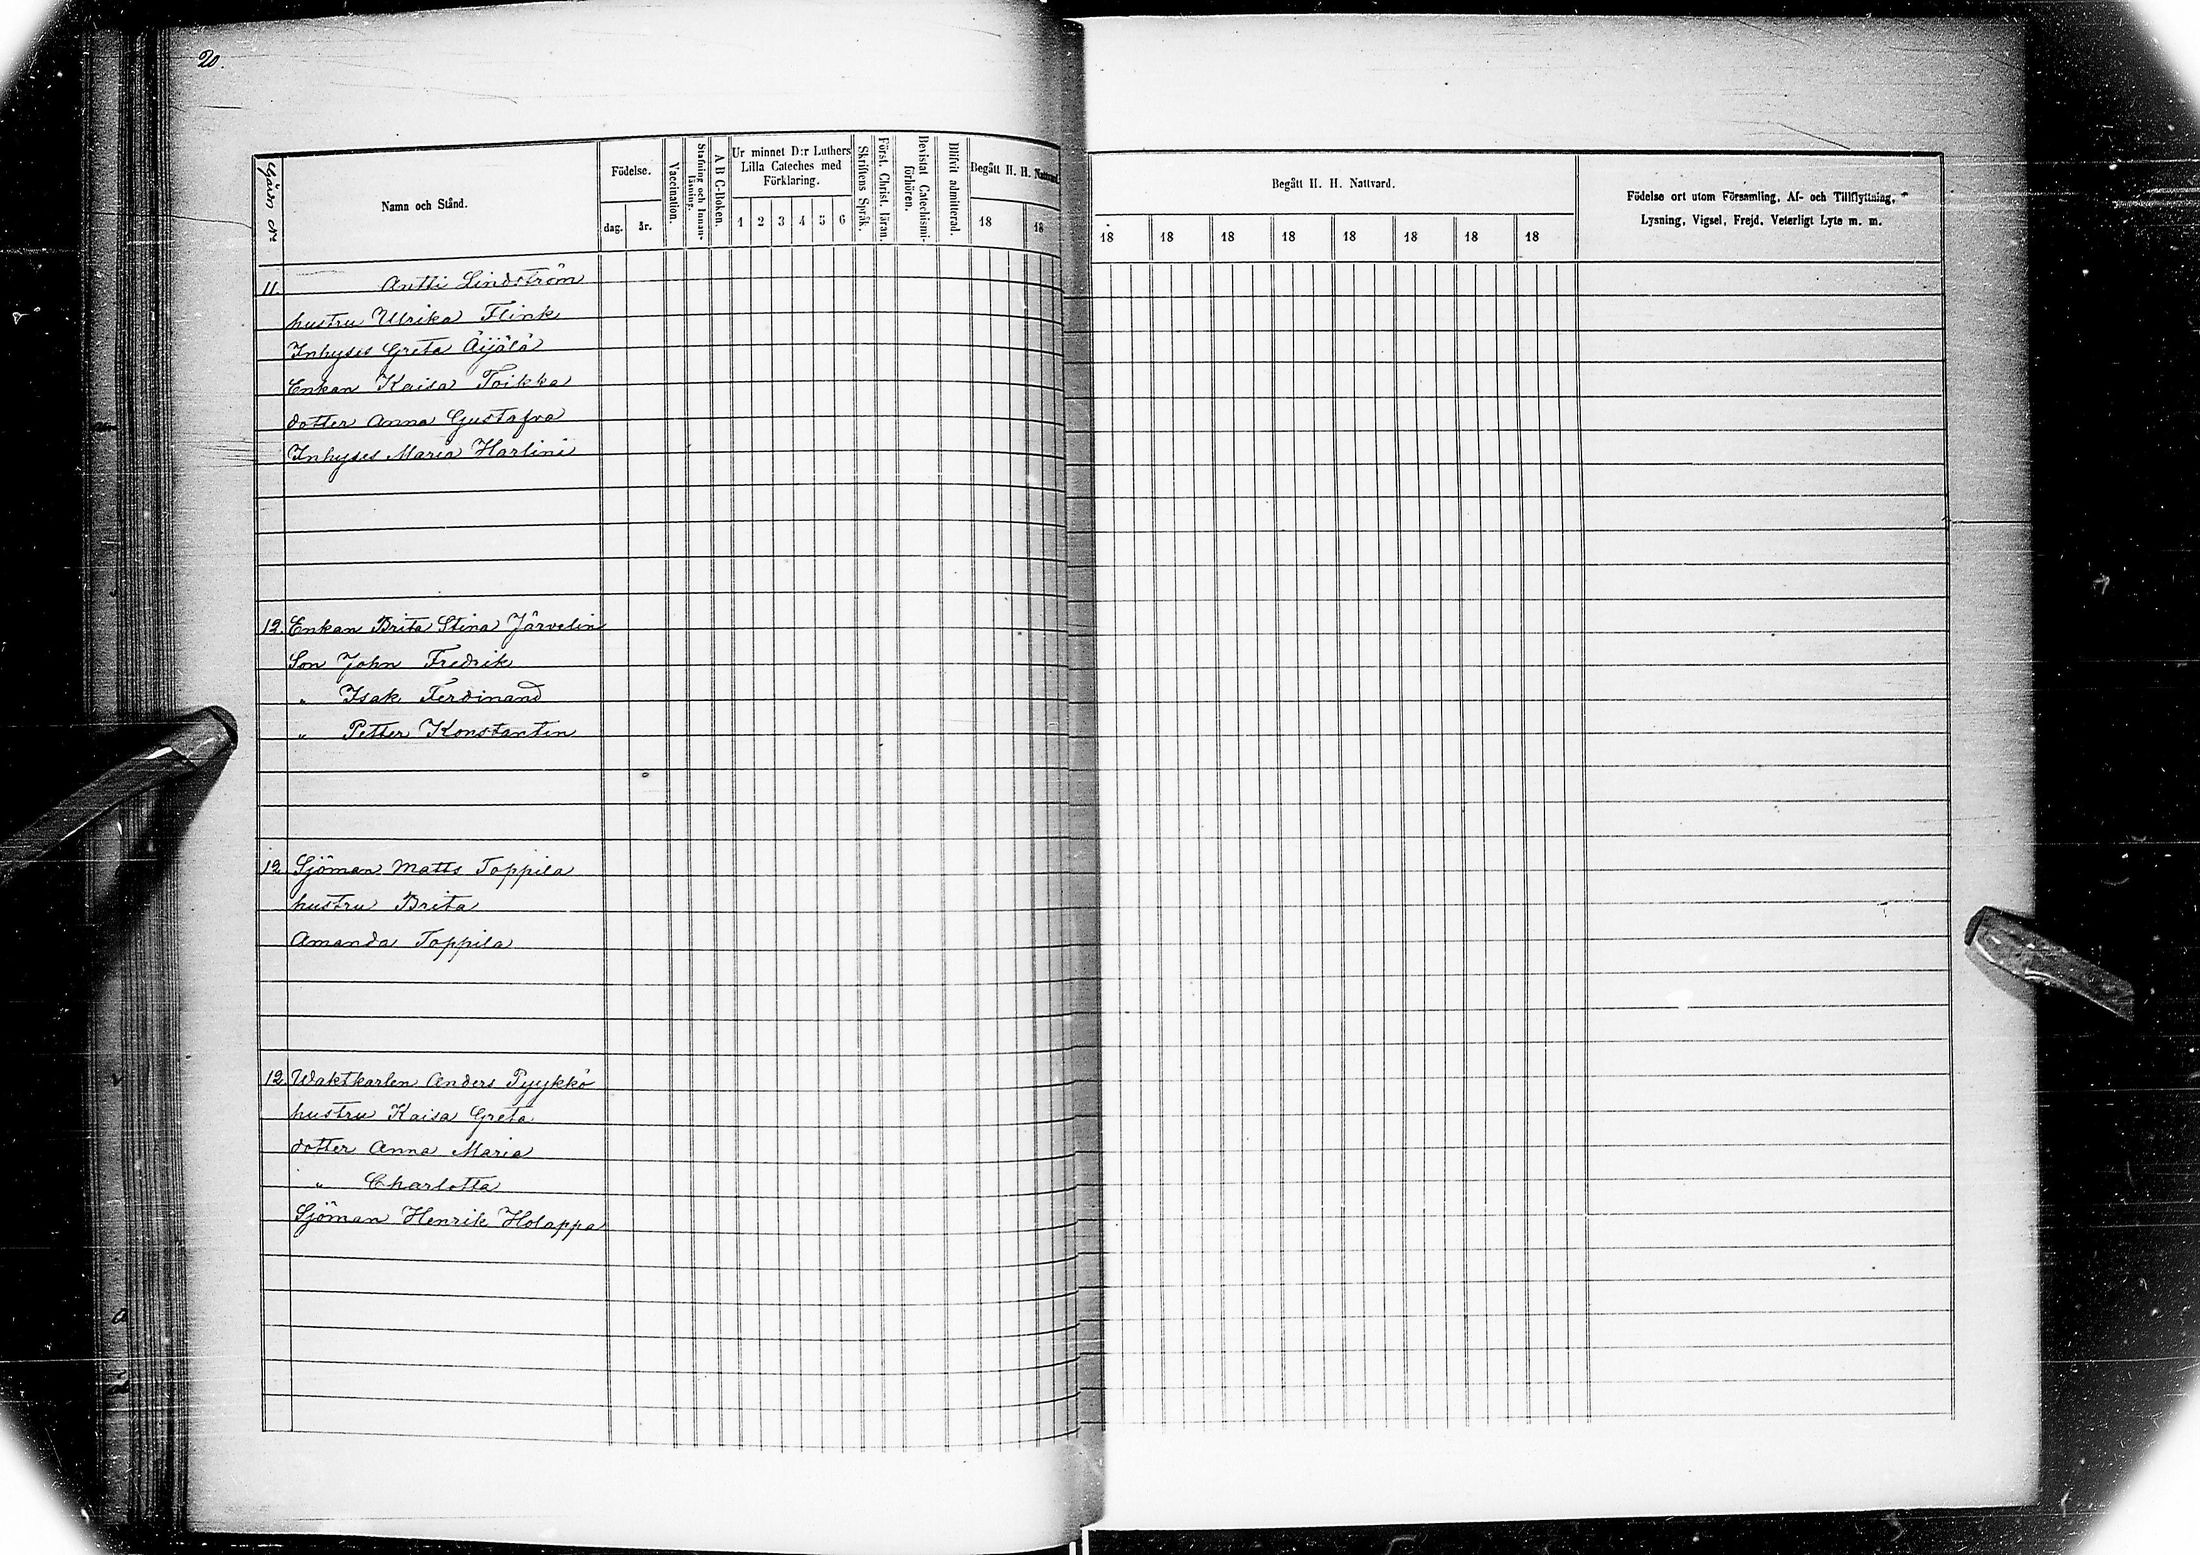 20.
Gård №
Namn och Stånd.
Födelse.
dag. år.
Vaccination.
Stafning och Innanläsning.
A B C-Boken.
Ur minnet D:r Luthers
Lilla Cateches med
Förklaring.
1 2 3 4 5 6
Skriftens Språk.
Först. Christ. läran.
Bevistat Catechismi-
förhören.
Blifvit admitterad.
Begått H. H. Nattvard.
18 18
Begått H. H. Nattvard.
18 18 18 18 18 18 18 18
Födelse ort utom Församling, Af- och Tillflyttning,
Lysning, Vigsel, Frejd, Veterligt Lyte m. m.
11. Antti Lindström
hustru Ulrika Flink
Inhyses Greta Äijälä
Enkan Kaisa Toikka
dotter Anna Gustafva
Inhyses Maria Harlini
12. Enkan Brita Stina Järvelin
Son John Fredrik
" Isak Ferdinand
" Petter Konstantin
12 Sjöman Matts Toppila
hustru Brita
Amanda Toppila
12 Waktkarlen Anders Pyykkö
hustru Kaisa Greta
dotter Anna Maria
" Charlotta
Sjöman Henrik Holappa